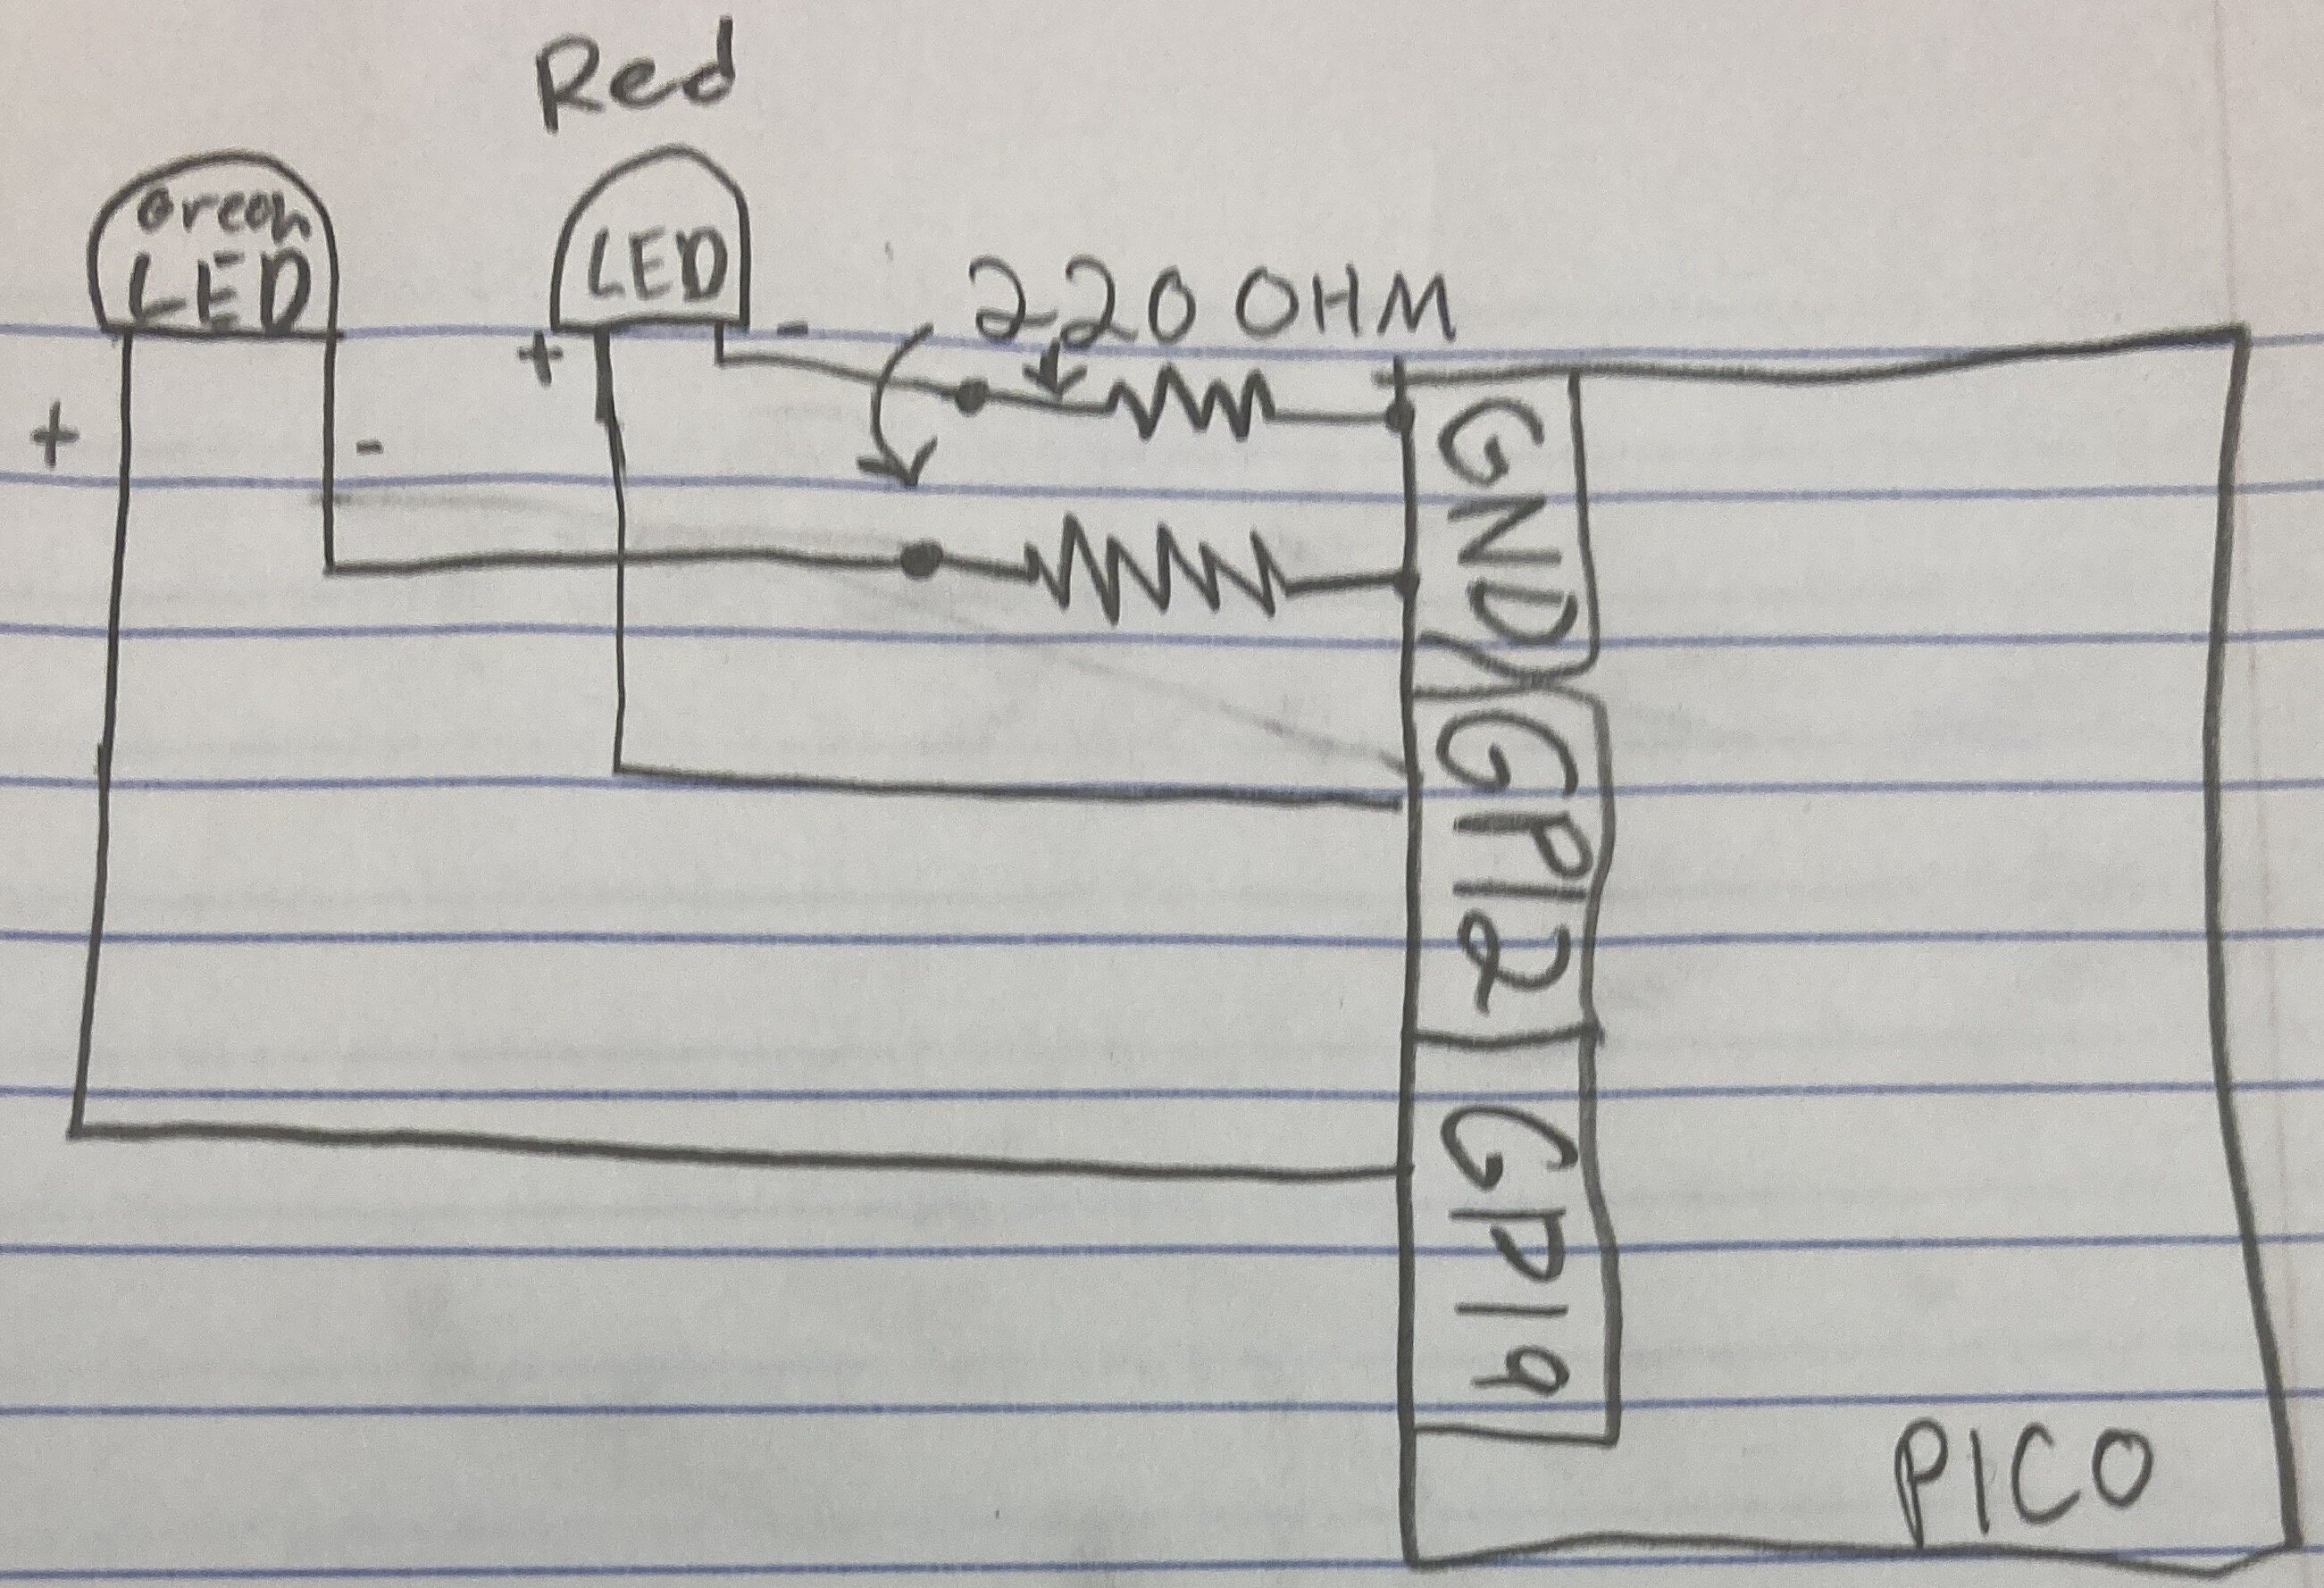 Red
Green
LED
LED
+
-
+
-
220 OHM
GND
GP12
GP19
PICO